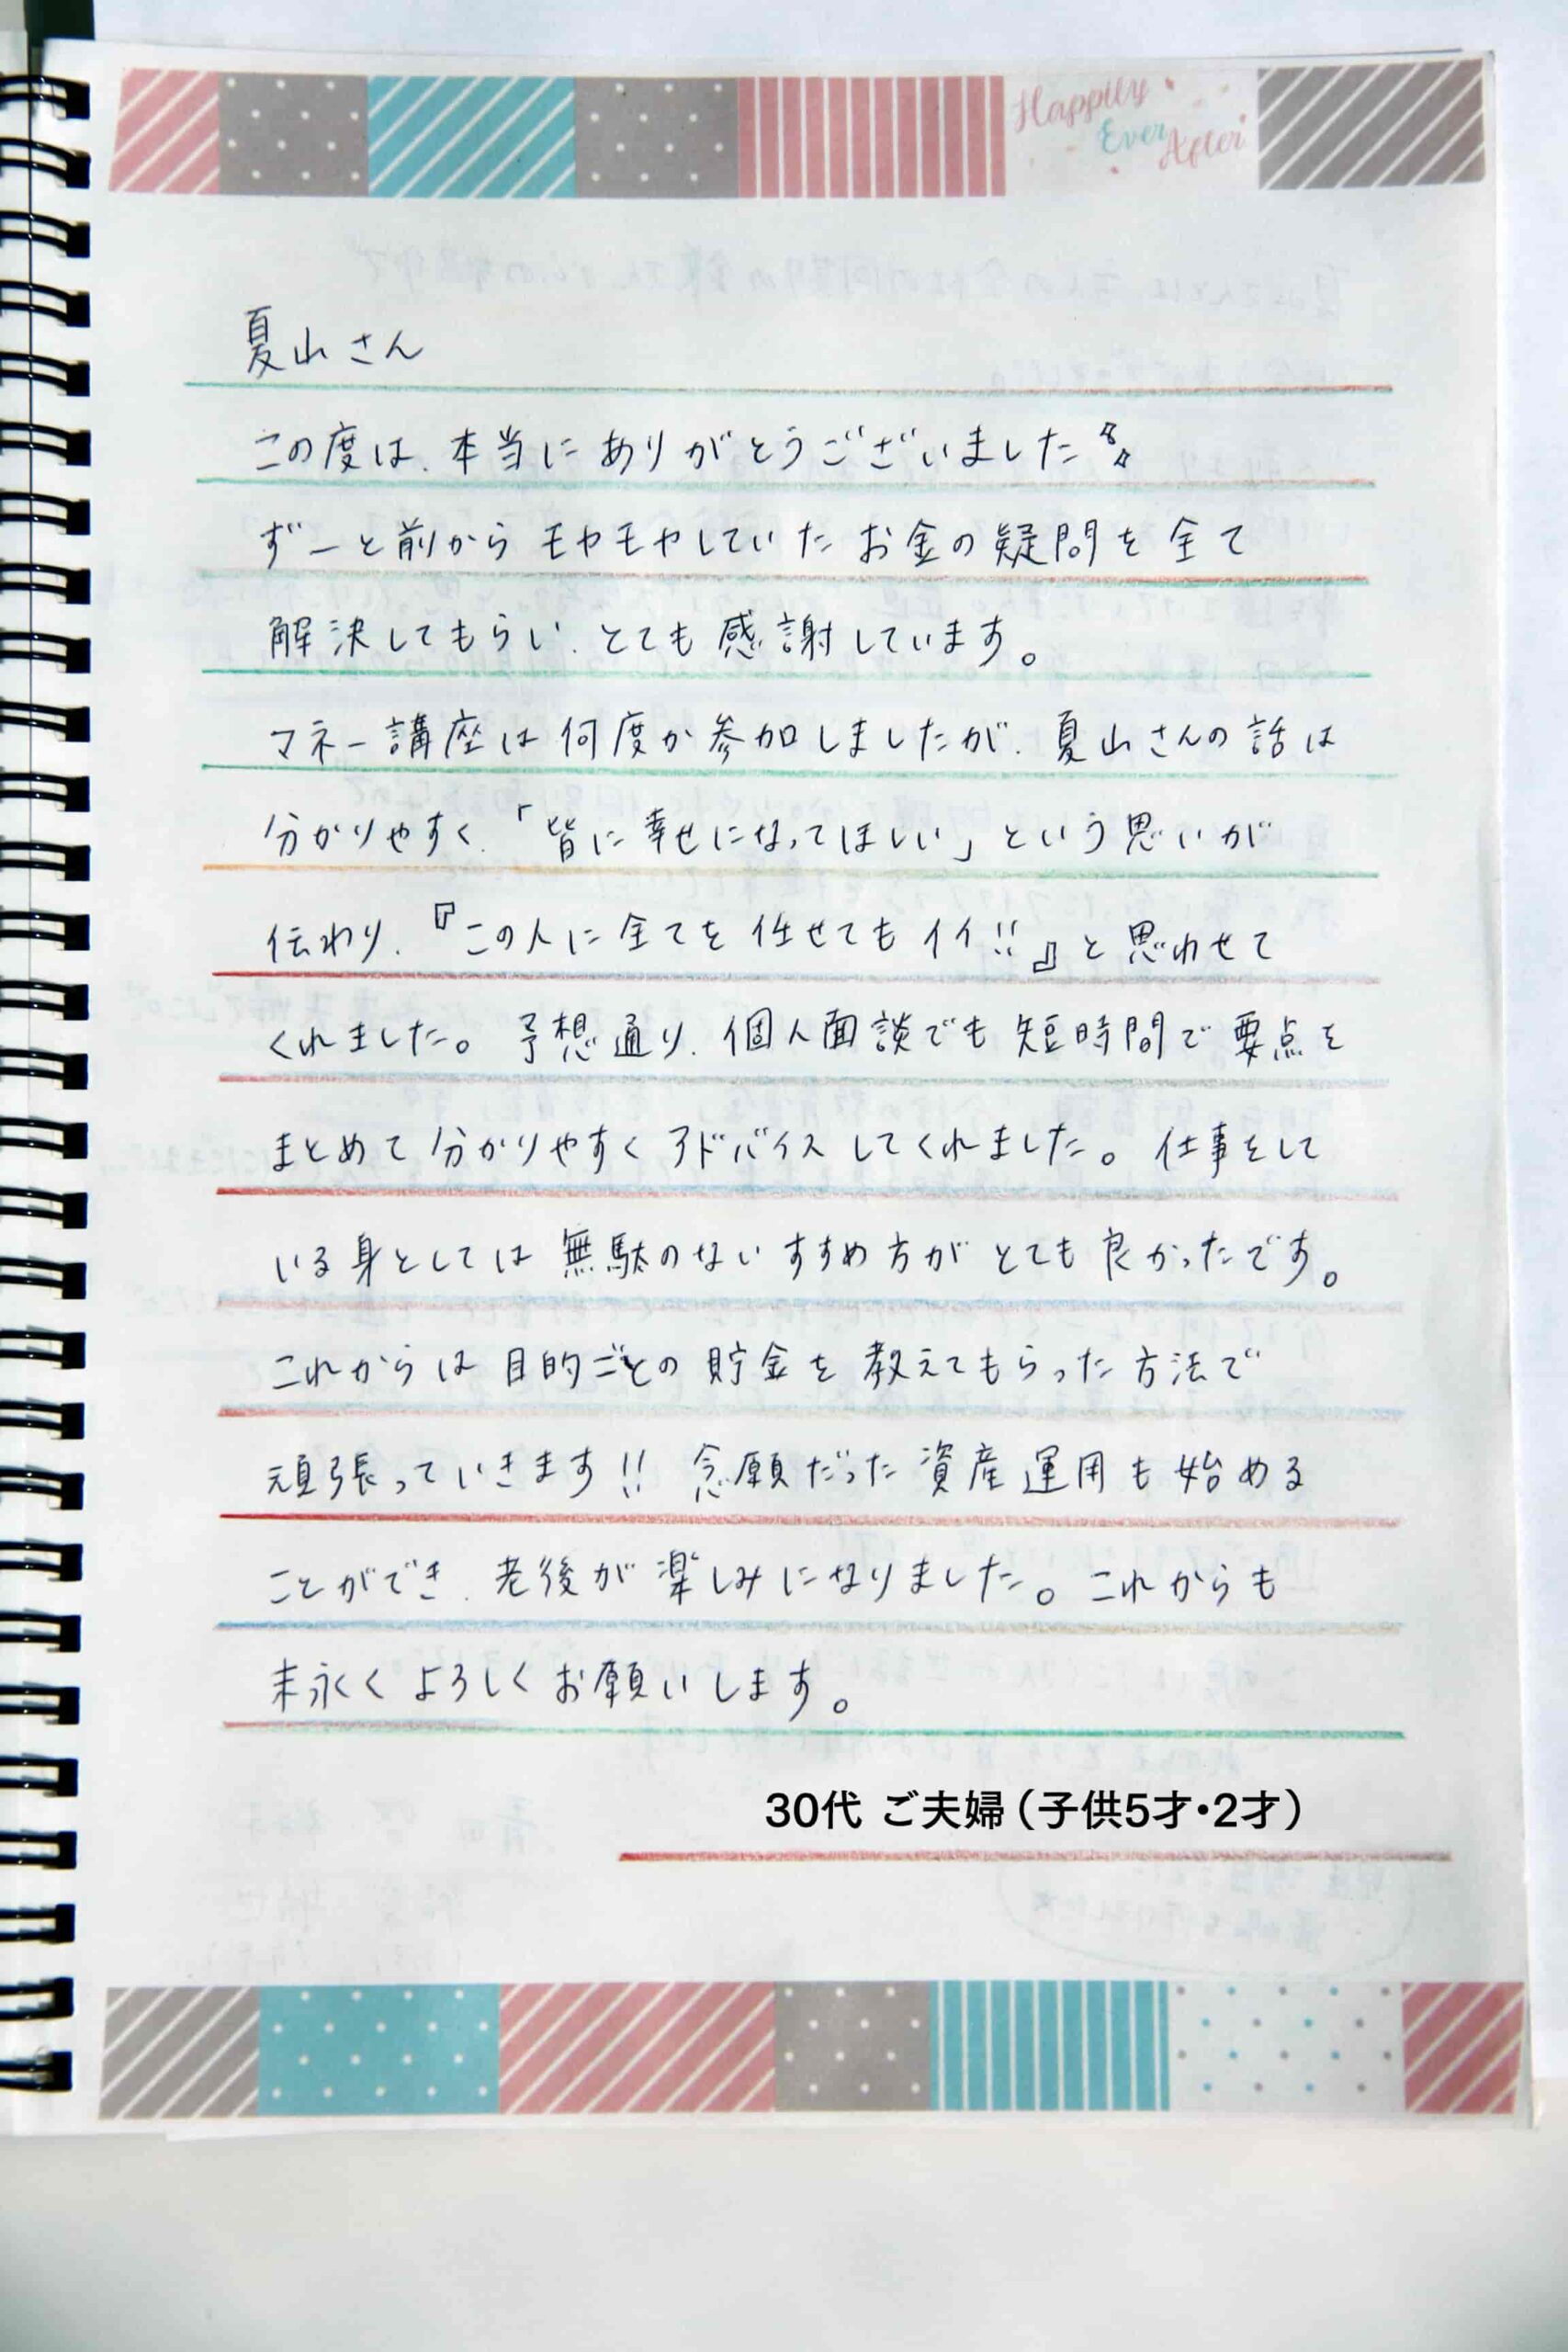 Happily
Ever
After
夏山さん
この度は、本当にありがとうございました
ずーと前からモヤモヤしていたお金の疑問を全て
解決してもらい、とても感謝しています。
マネー講座は何度か参加しましたが、夏山さんの話は
分かりやすく、「皆に幸せになってほしい」という思いが
伝わり、『この人に全てを任せてもイイ!!』と思わせて
くれました。予想通り、個人面談でも短時間で要点を
まとめて分かりやすくアドバイスしてくれました。仕事をして
いる身としては無駄のないすすめ方がとても良かったです。
これからは目的ごとの貯金を教えてもらった方法で
頑張っていきます!!念願だった資産運用も始める
ことができ、老後が楽しみになりました。これからも
末永くよろしくお願いします。
30代 ご夫婦(子供5才・2才)